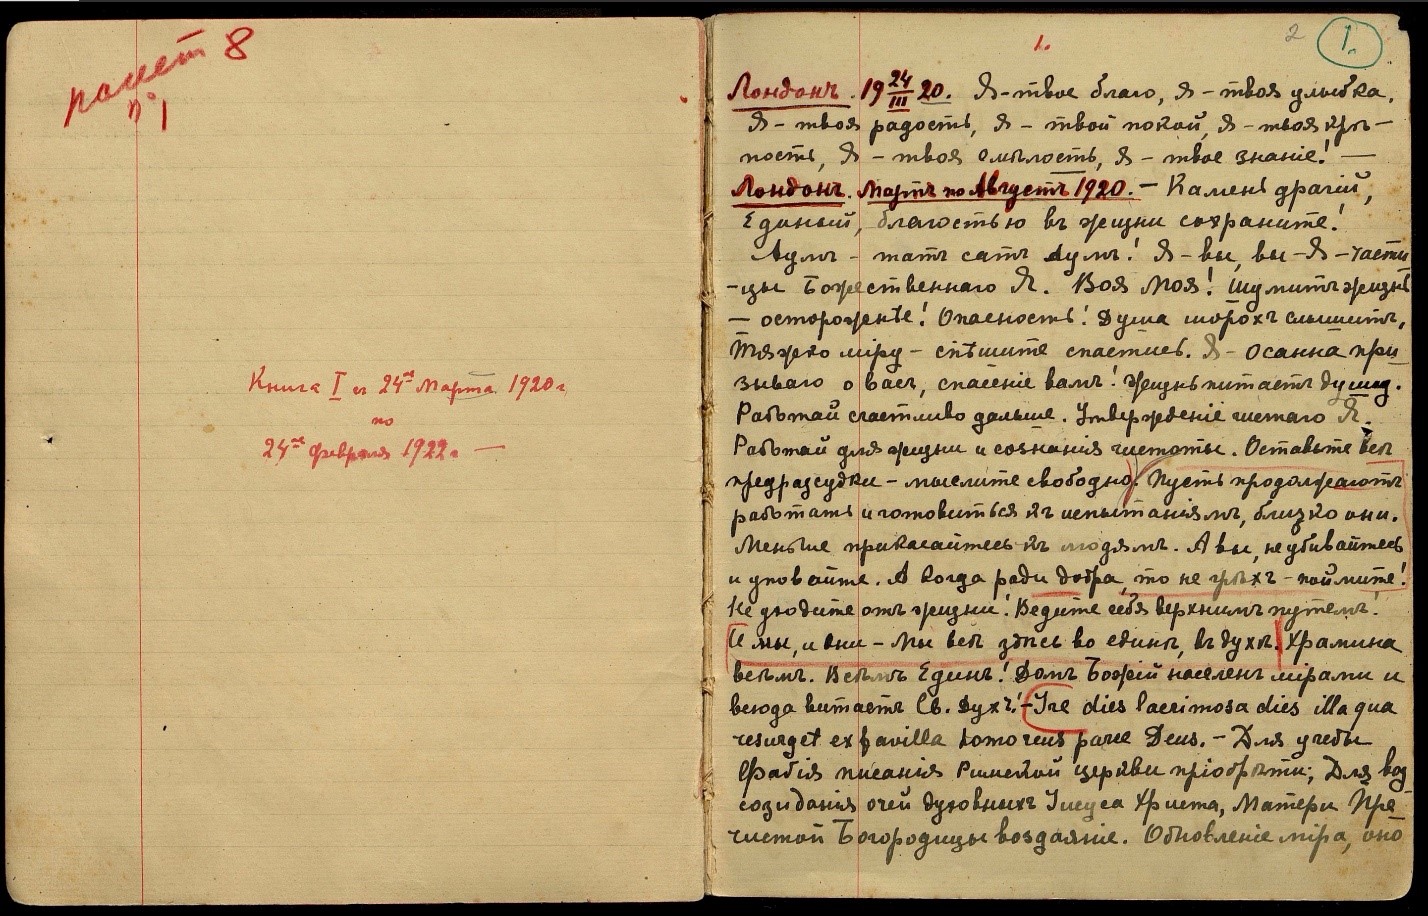 пакет 8
№ 1
Книга I с 24го Марта 1920 г.
по
24ое февраля 1922 г —
1.
2
1.
Лондонъ. 19 24/III 20. Я – твое благо, Я – твоя улыбка,
Я – твоя радость, Я – твой покой, Я – твоя крѣ–
пость, Я – твоя смѣлость, Я – твое знаніе! —
Лондонъ. Мартъ по Августъ 1920. – Камень драгій,
Единый, благостью въ жизни сохраните!
Аумъ – татъ сатъ Аумъ! Я – вы, вы – Я – части
-цы Божественнаго Я. Воя Моя! Шумитъ жизнь
— осторожнѣе! Опасность! Душа шорохъ слышитъ,
Тяжко міру – спѣшите спастись. Я – Осанна при
зываю о васъ, спасеніе вамъ! Жизнь питаетъ душу.
Работай счастливо дальше. Утвержденіе чистаго Я.
Работай для жизни и сознанія чистоты. Оставьте всѣ
предразсудки – мыслите свободно. Пусть продолжаютъ
работать и готовиться къ испытаніямъ, близко они.
Меньше прикасайтесь къ людямъ. А вы, не убивайтесь
и уповайте. А когда ради добра, то не грѣхъ – поймите!
Не уходите отъ жизни! Ведите себя верхнимъ путемъ!
И мы, и они – Мы всѣ здѣсь во единъ, въ духѣ. Храмина
всѣмъ. Всѣмъ Единъ! Домъ Божій населенъ мірами и
всюда витаетъ Св. Духъ! – Ire dies lacrimosa dies illa qua
resurget ex favilla homo reus parce Deus. – Для учебы
Фабія писанія Римской церкви пріобрѣти; Для воз
созиданія очей духовныхъ Іисуса Христа, Матери Пре
чистой Богородицы воздаяніе. Обновленіе міра, оно